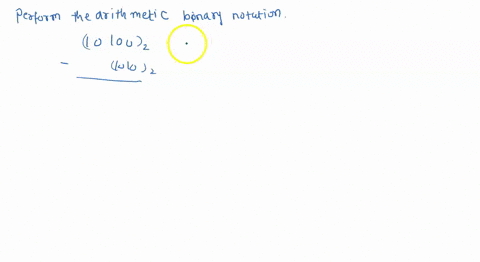 Perform the arithmetic binary notation.
(10100)₂
- (1010)₂